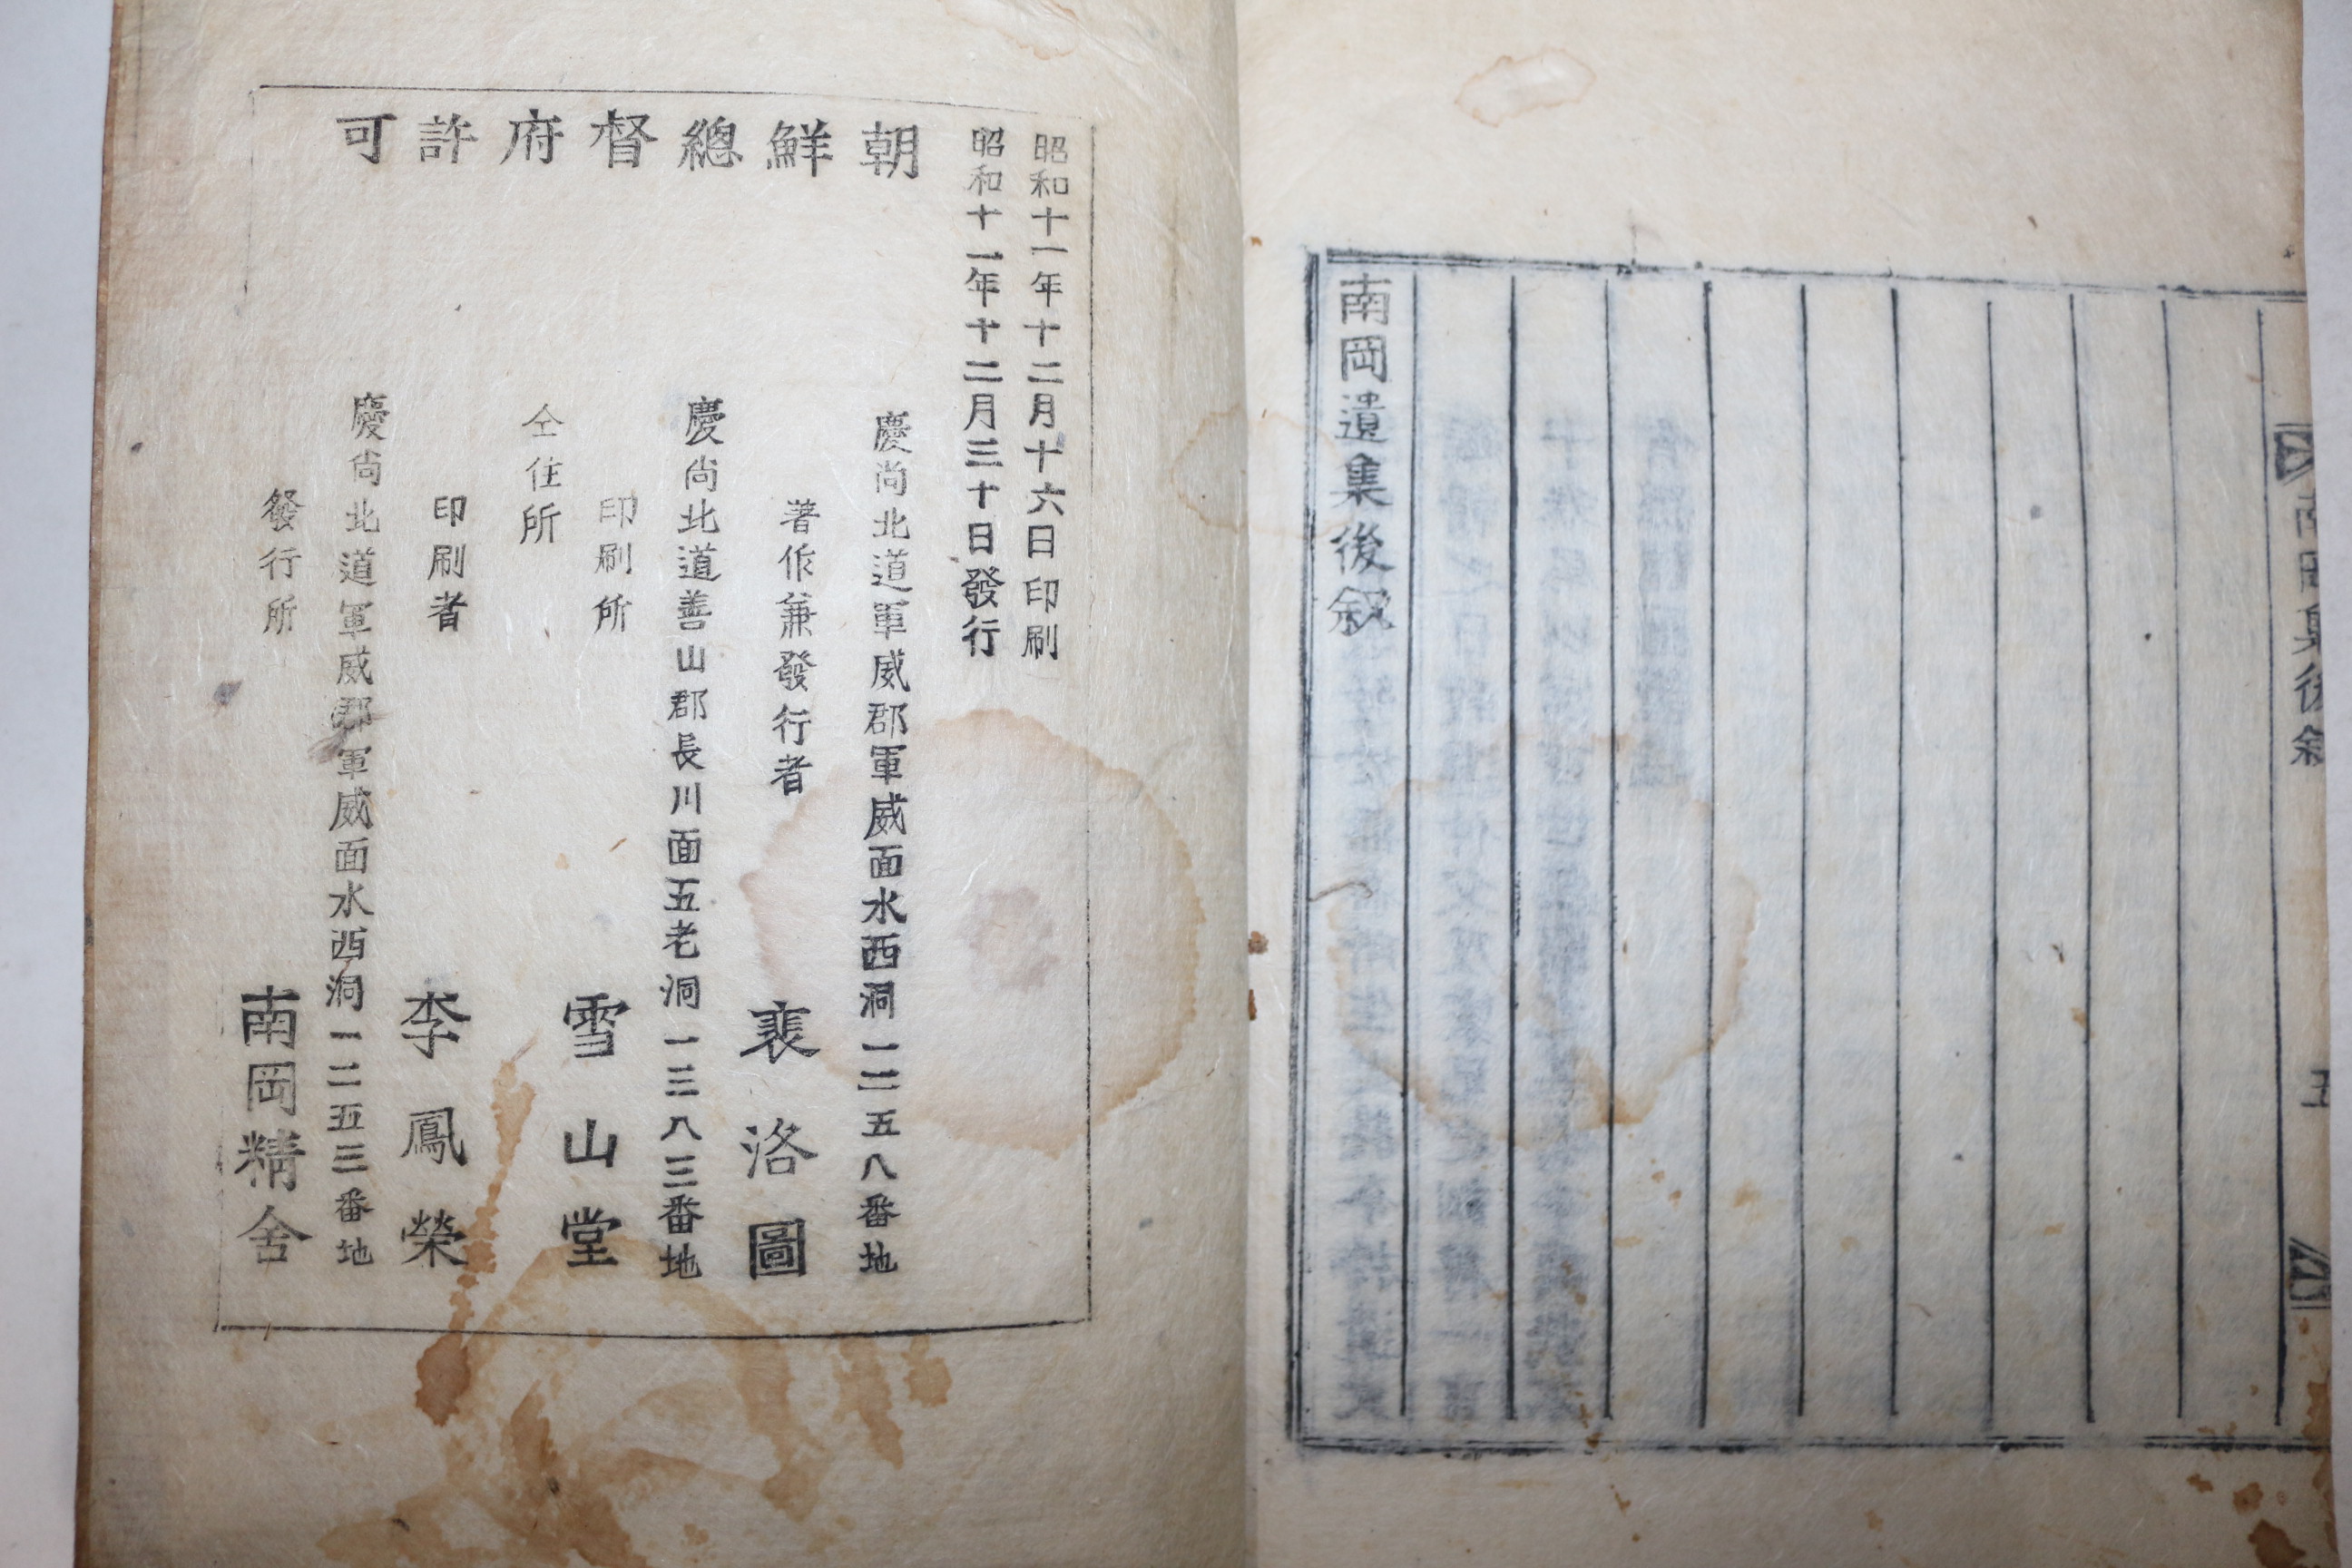 南岡集後叙
五
南岡遺集後叙
昭和十一年十二月十六日印刷
昭和十一年十二月三十日發行
朝鮮總督府許可
慶尙北道軍威郡軍威面水西洞一二五八番地
著作兼發行者 裵洛圖
慶尙北道善山郡長川面五老洞一三八三番地
印刷所 雪山堂
仝住所
印刷者 李鳳榮
慶尙北道軍威郡軍威面水西洞一二五三番地
發行所 南岡精舍